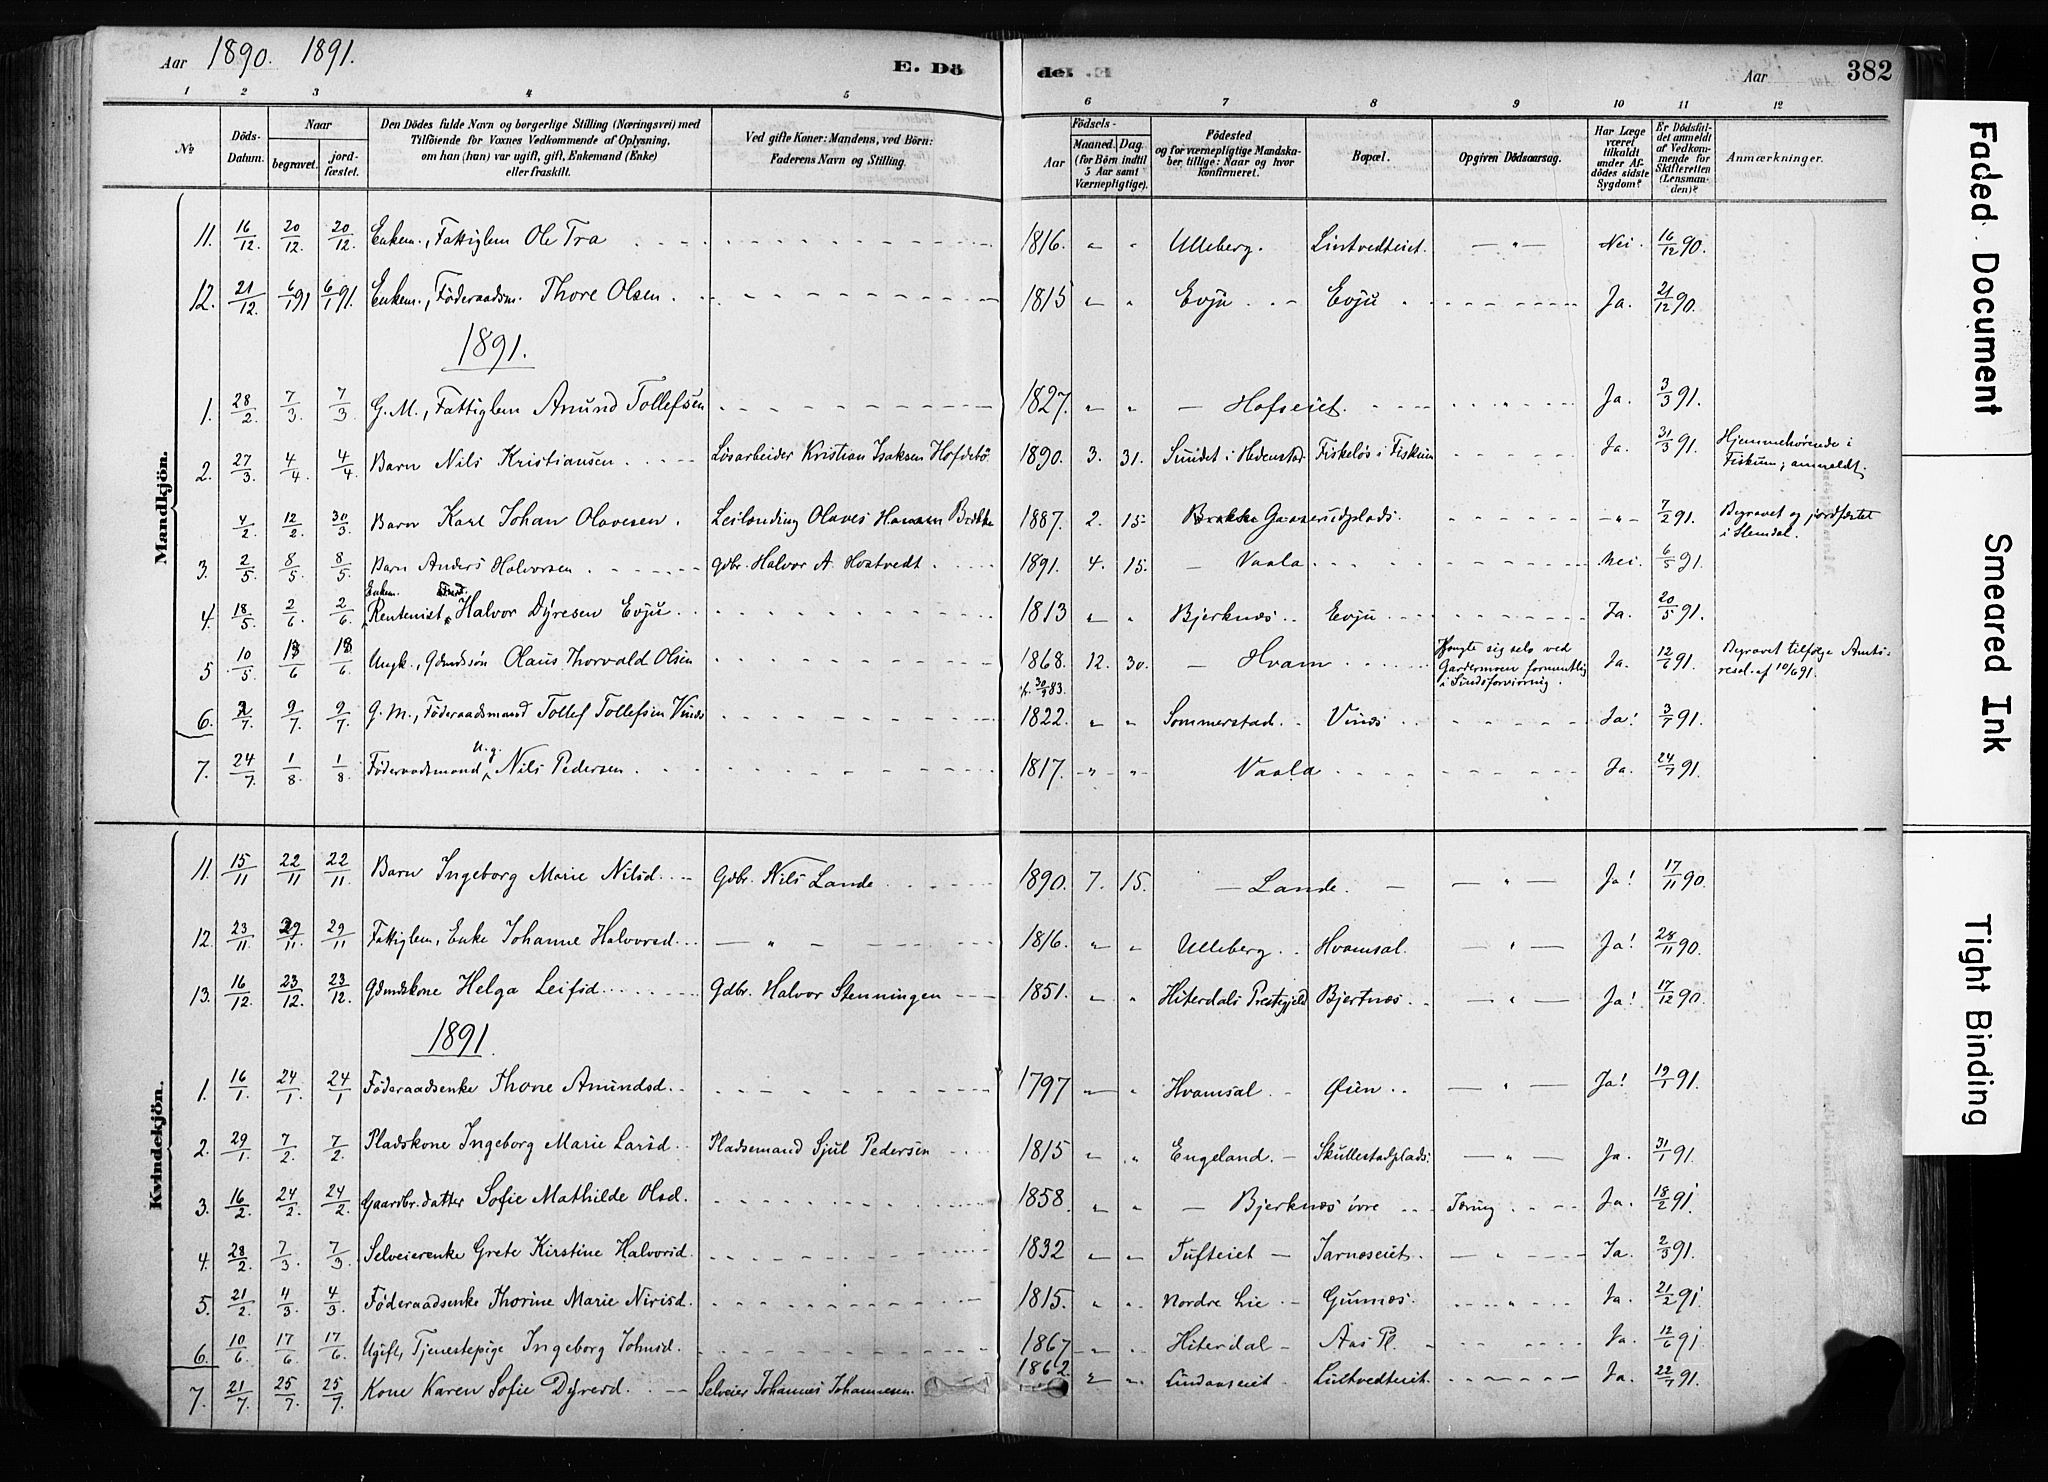 Aar 1890. 1891.
E. Dö
de.
Aar
382
1 2 3 4 5 6 7 8 9 10 11 12
No
Döds-Datum.
Naar
begravet.
jord-fæstet.
Den Dödes fulde Navn og borgerlige Stilling (Næringsvei) med
Tilföiende for Voxnes Vedkommende af Oplysning,
om han (hun) var ugift, gift, Enkemand (Enke)
eller fraskilt.
Ved gifte Koner: Mandens, ved Börn:
Faderens Navn og Stilling.
Födsels-
Aar
Maaned. Dag.
(for Börn indtil
5 Aar samt
Værnepligtige).
Födested
og for værnepligtige Mandska-
ber tillige: Naar og hvor
konfirmeret.
Bopæl.
Opgiven Dödsaarsag.
Har Læge
været
tilkaldt
under Af-
dödes sidste
Sygdom?
Er Dödsfal-
det anmeldt
af Vedkom-
mende for
Skifteretten
(Lensman-
den)?
Anmærkninger.
Mandkjön.
11. 16/12. 20/12. 20/12. Enkem., Fattiglem Ole Tra 1816. " " Ulleberg. Lintvedteiet. — " — Nei. 16/12 90.
12. 21/12. 6/1 91 6/1 91. Enkem., Föderaadsm. Thore Olsen. 1815 " " Evju Evju Ja. 21/12 90.
1891.
1. 28/2. 7/3. 7/3. G. M., Fattiglem Amund Tollefsen 1827. " " — Hofseiet. Ja. 3/3 91.
2. 27/3. 4/4. 4/4. Barn Nils Kristiansen. Lösarbeider Kristian Isaksen Hofdebö. 1890. 3. 31. Sundet i Hedenstad. Fiskelös i Fiskum Ja. 31/3 91. Hjemmehörende i
Fiskum, anmeldt.
4/2. 12/2. 30/3. Barn Karl Johan Olavesen. Leilænding Olaves Hansen Brekke 1887. 2. 15. Gaaserudplads. — " — 7/2 91. Begravet og jordfæstet
i Hemdal.
3. 2/5. 8/5. 8/5. Barn Anders Halvorsen Gdbr. Halvor A. Hostvedt. 1891. 4. 15. — Vaala Nei. 6/5 91.
Enkem.
4. 18/5. 2/6. 2/6. Rentenist, Halvor Dyresen Evju 1813 " " Bjerknæs. Evju. Ja. 20/5 91.
5 10/5. 13/6 13/6 Ungk., Gdmdssön Olaus Thorvald Olsen 1868. 12. 30. — Hvam Hængte sig selv ved
Gardermoen formentlig
i Sindsforvirring. Ja. 12/6 91. Begravet tilfölge Amts-
resol. af 10/6 91.
6. 2/7. 9/7. 9/7. G. M., Föderaadsmand Tollef Tollefsen Vinæs 1822. " " Sommerstad. Vinæs Ja! 3/7 91.
u. g.
7. 24/7. 1/8 1/8 Föderaadsmand Nils Pedersen. 1817. " " Vaala Ja. 24/7 91.
Kvindekjön.
11. 15/11 22/11 22/11. Barn Ingeborg Marie Nilsd. Gdbr. Nils Lande 1890. 7. 15. — Lande. — " — Ja! 17/11 90.
12. 23/11 29/11. 29/11 Fattiglem, Enke Johanne Halvorsd. — " — 1816. " " Ulleberg Hvamsal. — " — Ja! 28/11 90.
13. 16/12. 23/12. 23/12. Gdmdskone Helga Leifsd. Gdbr. Halvor Stenningen 1851. " " Hiterdals Prestegjeld Bjertnæs — " — Ja! 17/12 90.
1891.
1. 16/1. 24/1. 24/1 Föderaadsenke Thone Amundsd. 1797 " " Hvamsal. Öien — " — Ja! 19/1 91.
2. 29/1. 7/2. 7/2. Pladskone Ingeborg Marie Larsd. Pladsemand Sjul Pedersen 1815 " " Engeland. — Skullestadplads. — " — Ja. 31/1 91.
3. 16/2. 24/2. 24/2. Gaardbr.datter Sofie Mathilde Olsd. 1858. " " — Bjerknæs övre Tæring Ja. 18/2 91.
4. 28/2. 7/3. 7/3. Selveierenke Grete Kirstine Halvorsd. 1832 " " Tufteiet — Jarnæseiet. Ja. 2/3 91.
5. 21/2. 4/3. 4/3. Föderaadsenke Thorine Marie Nirisd. 1815. " " Nordre Lie — Gunnæs. Ja. 21/2 91.
6. 10/6 17/6 17/6. Ugift, Tjenestepige Ingeborg Johnsd. 1867 " " Hiterdal — Aas Pl. Ja. 12/6 91
7. 21/7. 25/7 25/7. Kone Karen Sofie Dyresd. Selveier Johannes Johannesen 1862. " " Lindaaseiet Lintvedteiet. Ja. 22/7 91.
Faded Document
Smeared Ink
Tight Binding